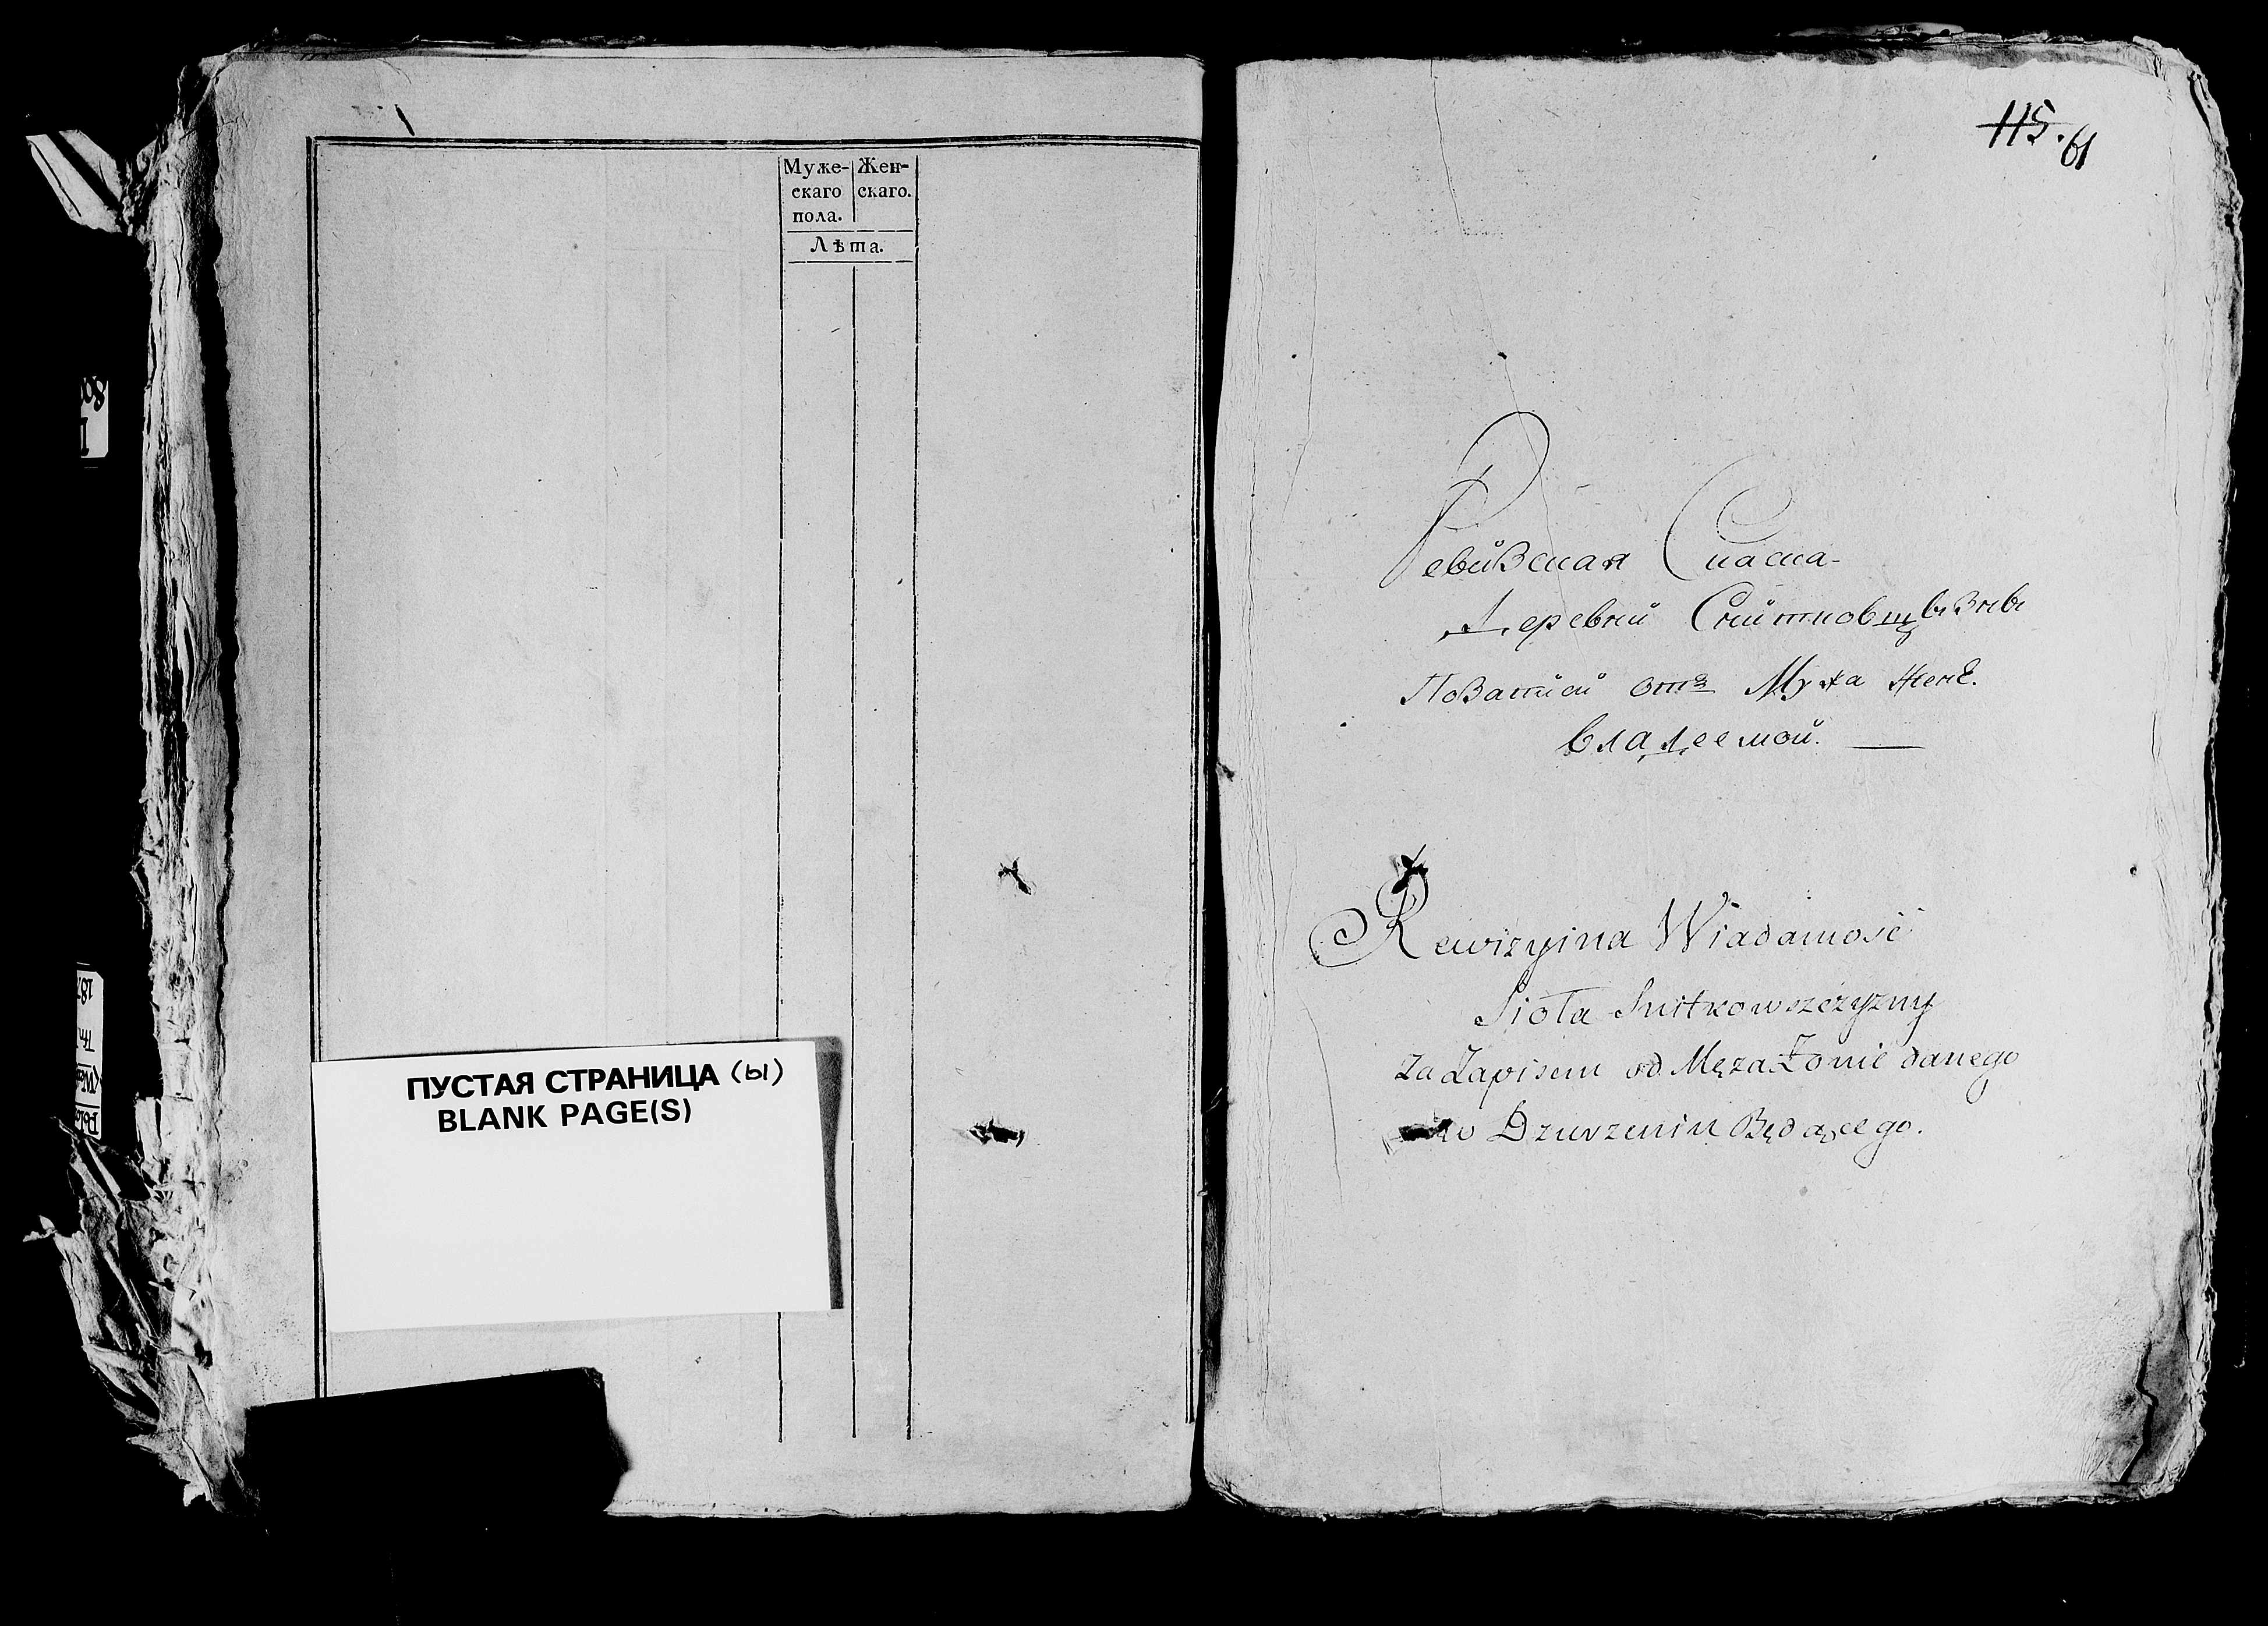 Муже-
скаго
пола.
Жен-
скаго.
Лѣта.
ПУСТАЯ СТРАНИЦА (ы)
BLANK PAGE(S)
115. 61
Ревизская Скаска
Деревни Снитковщызны
По Записи отъ Мужа жене
владеемой.
Rewizyina Wiadamosć
Sioła Snitkowszczyzny
Za Zapisem od Męza Zonie danego
w Dzierzeniu Będącego.